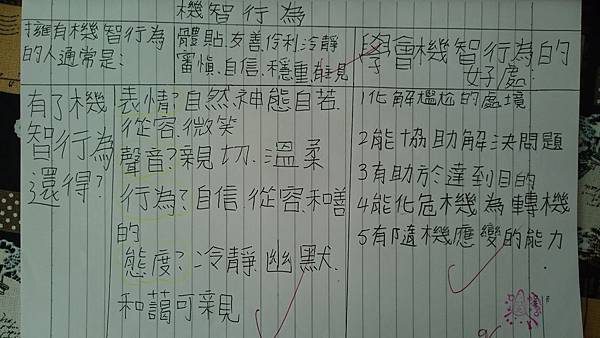 機智行為
擁有機智行為
的人通常是:
體貼、友善、伶利、冷靜
審慎、自信、穩重、有主見
學會機智行為的
好處:
有了機
智行為
還得?
表情?自然、神態自若、
從容、微笑
聲音?親切、溫柔
行為?自信、從容、和善
的
態度?冷靜、幽默、
和藹可親
1化解尷尬的處境
2能協助解決問題
3有助於達到目的
4能化危機為轉機
5有隨機應變的能力